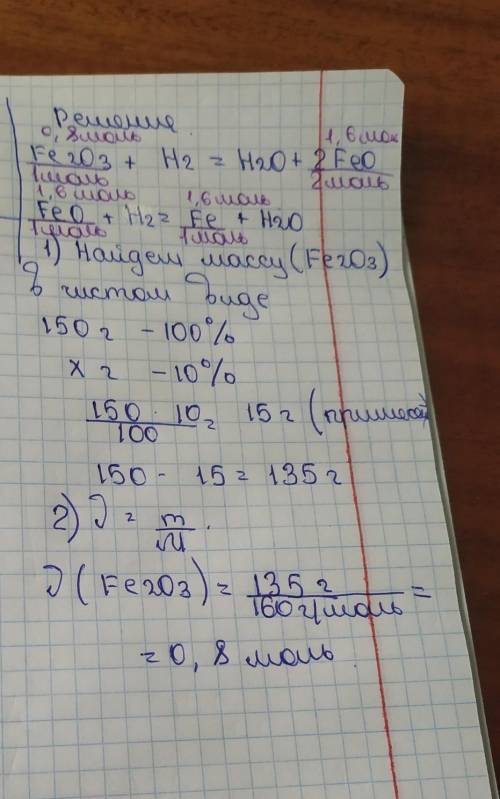 Решение.
0,8моль 1,6мол
Fe2O3 + H2 = H2O + 2FeO
1моль 2моль
1,6моль 1,6моль
FeO + H2 = Fe + H2O
1моль 1моль
1) Найдем массу (Fe2O3)
В чистом виде
150г - 100%
x г - 10%
150 · 10 = 15г (примесей)
100
150 - 15 = 135г
2) ν = m
M
ν (Fe2O3) = 135г =
160г/моль
= 0,8 моль